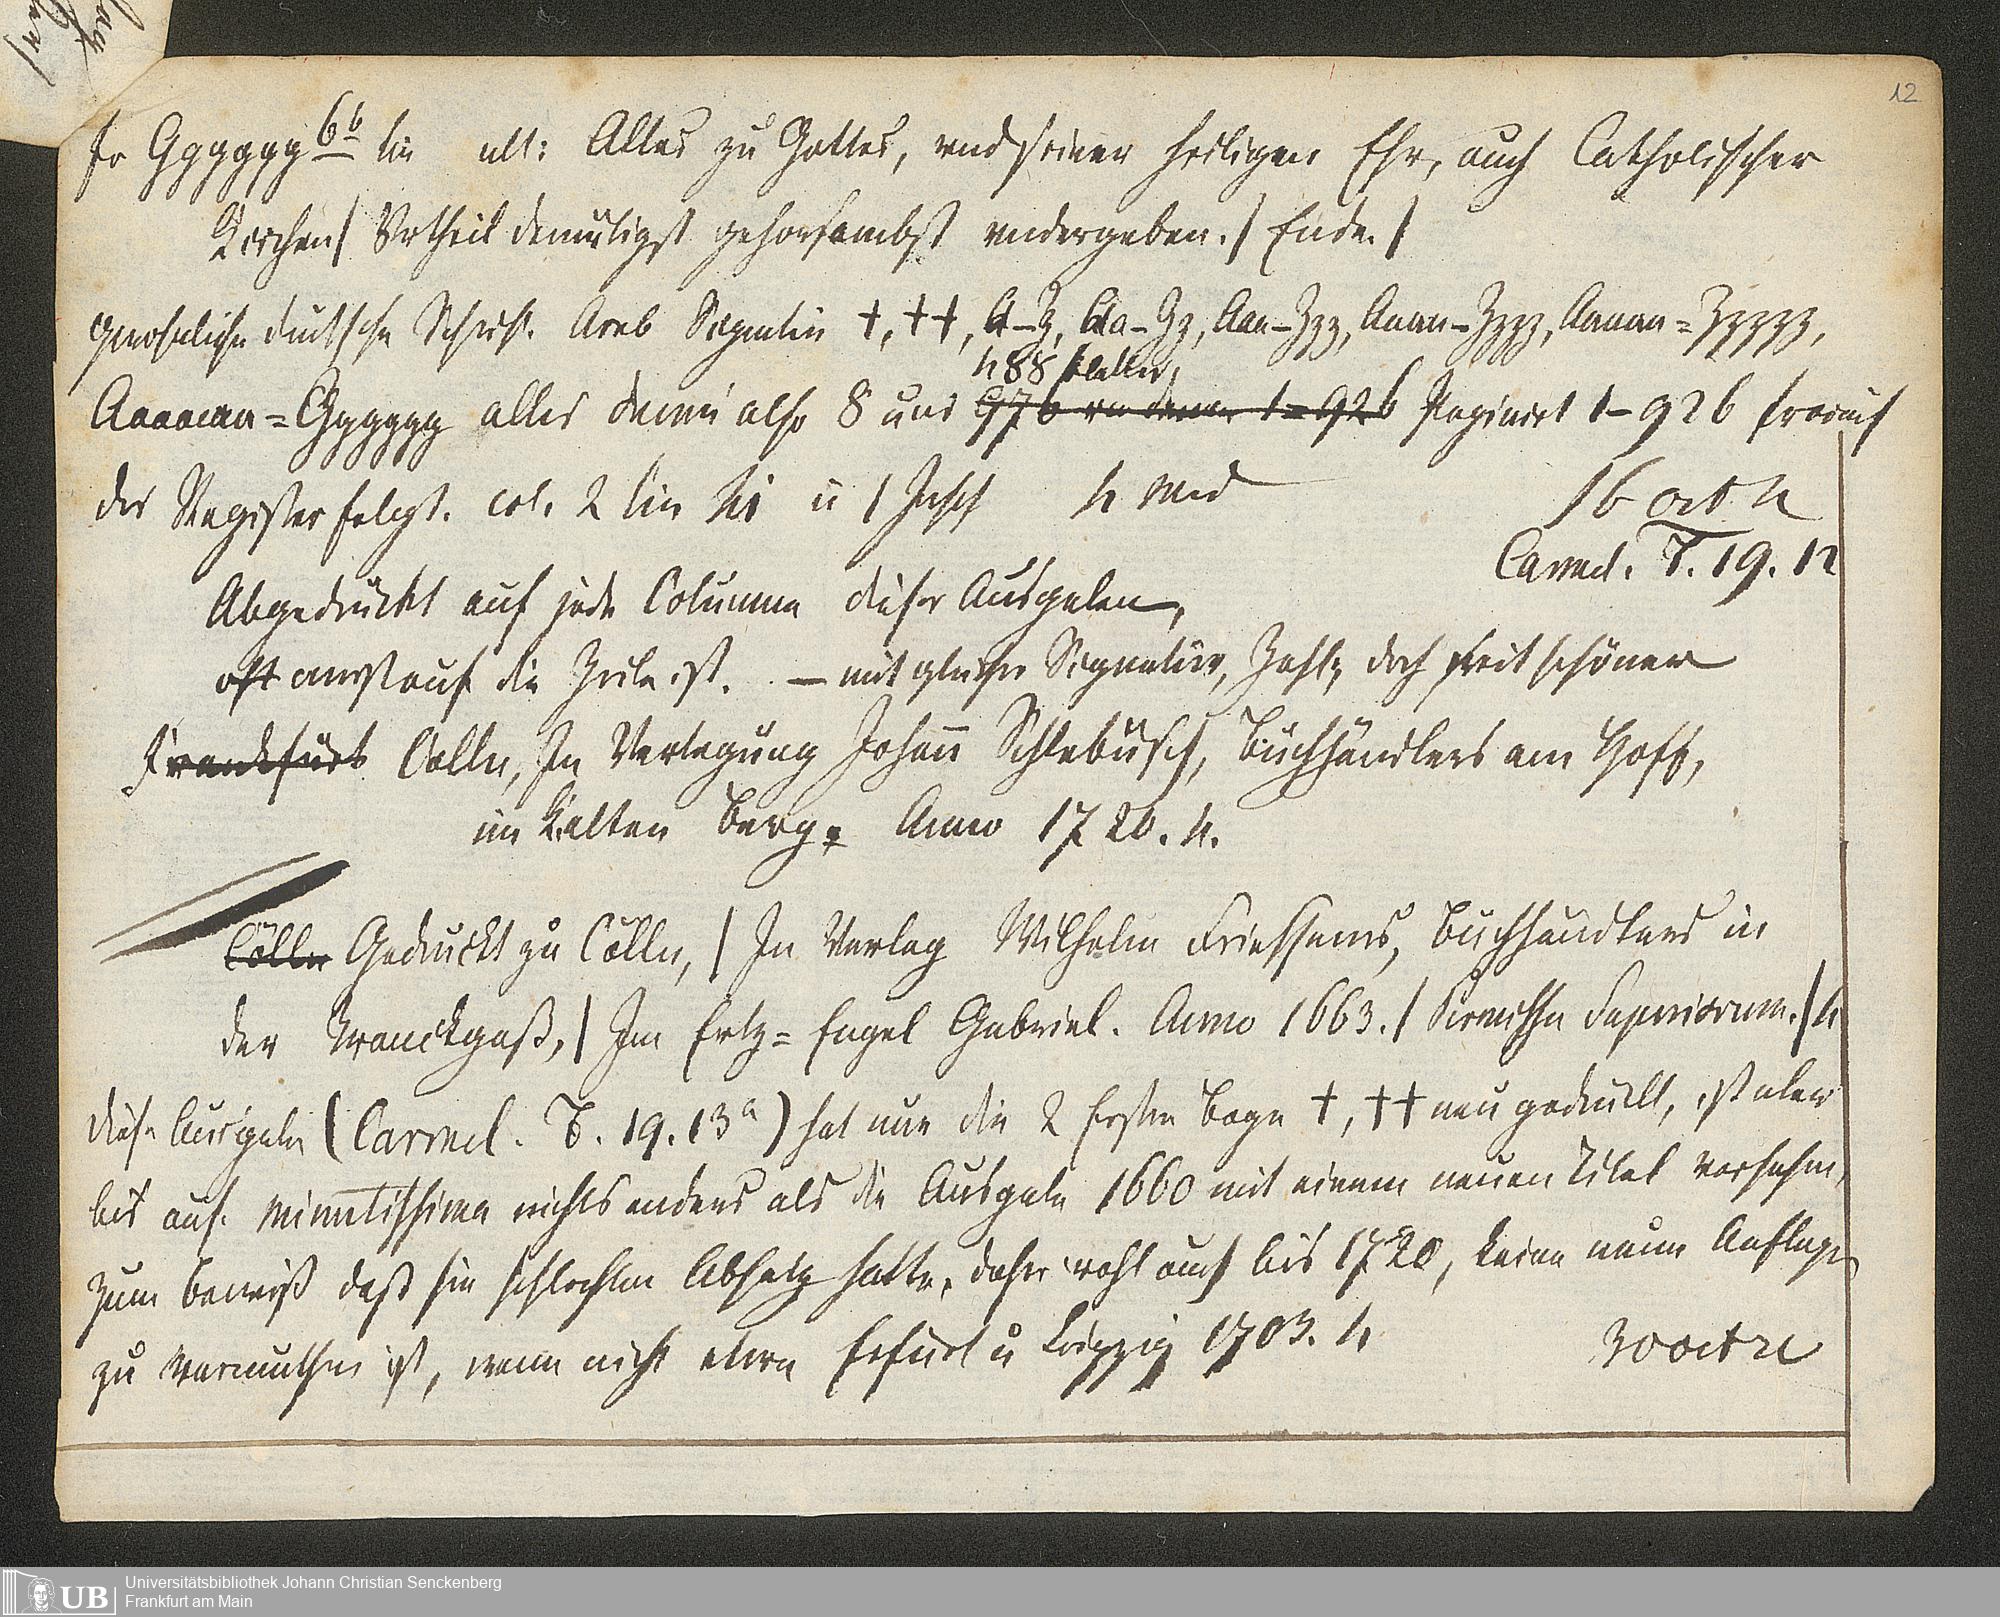 12
fo Ggggggg 6b lin ult: Alles zu Gottes, vnd seiner heiligen Ehr, auch Catholischer
Kirchen/ Vrtheil demütigst gehorsambst vndergeben./ Ende./
deutsche Schrift. Arab Signatur †, ††, A–Z, Aa–Zz, Aaa–Zzz, Aaaa–Zzzz, Aaaaa=Zzzzz,
488 Blätter,
Aaaaaaa=Ggggggg alles also 8 und 976 1=926 Paginirt 1–926 worauf
das Register folgt. col. 2 lin u 4 Med
16 oct
Carmel. T. 19. 12
Abgedruckt auf jede Columne dieser Ausgaben,
oft auf die Zeile ist. – mit gleicher Signatur, Zahl, doch weit schöner
Frankfurt Cölln, In Verlegung Johann Schlebusch, Buchhändlers am Hoff,
im Kalten Berg. Anno 1720. 4.
Cölln Gedruckt zu Cölln, / In Verlag Wilhelm Friessems, Buchhändlers in
der Tranckgaß, / Im Ertz=Engel Gabriel. Anno 1663. / Permissu Superiorum. / 4
Diese Ausgabe (Carmel. T. 19. 13a) hat nur die 2 ersten Bogen †, †† neu gedruckt, ist aber
bis auf minutissima nichts anders als die Ausgabe 1660 mit einem neuen Titel versehen,
zum Beweiß daß sie schlechten Absatz hatte, daher wohl auch bis 1720, keine neue Auflage
zu vermuthen ist, wenn nicht etwa Erfurt u Leipzig 1703. 4
30 oct
UB
Universitätsbibliothek Johann Christian Senckenberg
Frankfurt am Main